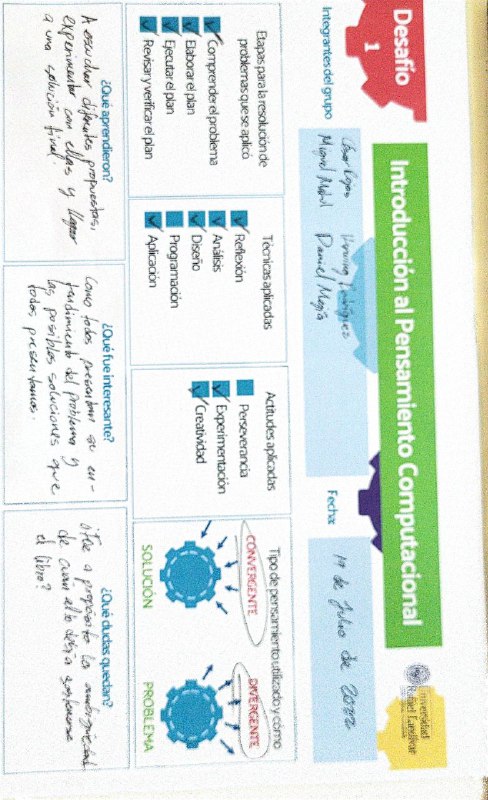 Desafío
1
Introducción al Pensamiento Computacional
Universidad
Rafael Landívar
Integrantes del grupo
César Rojas
Miguel
Daniel Mejía
Fecha:
de Julio de 2022
Etapas para la resolución de
problemas que se aplicó
Comprender el problema
Elaborar el plan
Ejecutar el plan
Revisar y verificar el plan
Técnicas aplicadas
Reflexión
Análisis
Diseño
Programación
Aplicación
Actitudes aplicadas
Perseverancia
Experimentación
Creatividad
Tipo de pensamiento utilizado y cómo
CONVERGENTE
DIVERGENTE
SOLUCIÓN
PROBLEMA
¿Qué aprendieron?
A escuchar diferentes propuestas,
experimentar con ellas y llegar
a una solución final
¿Qué fue interesante?
Como todos presentan su en-
tendimiento del problema y
las posibles soluciones que
todos presentamos.
¿Qué dudas quedan?
¿Fue a propósito la ambigüedad
de cuan alto debía sostenerse
el libro?